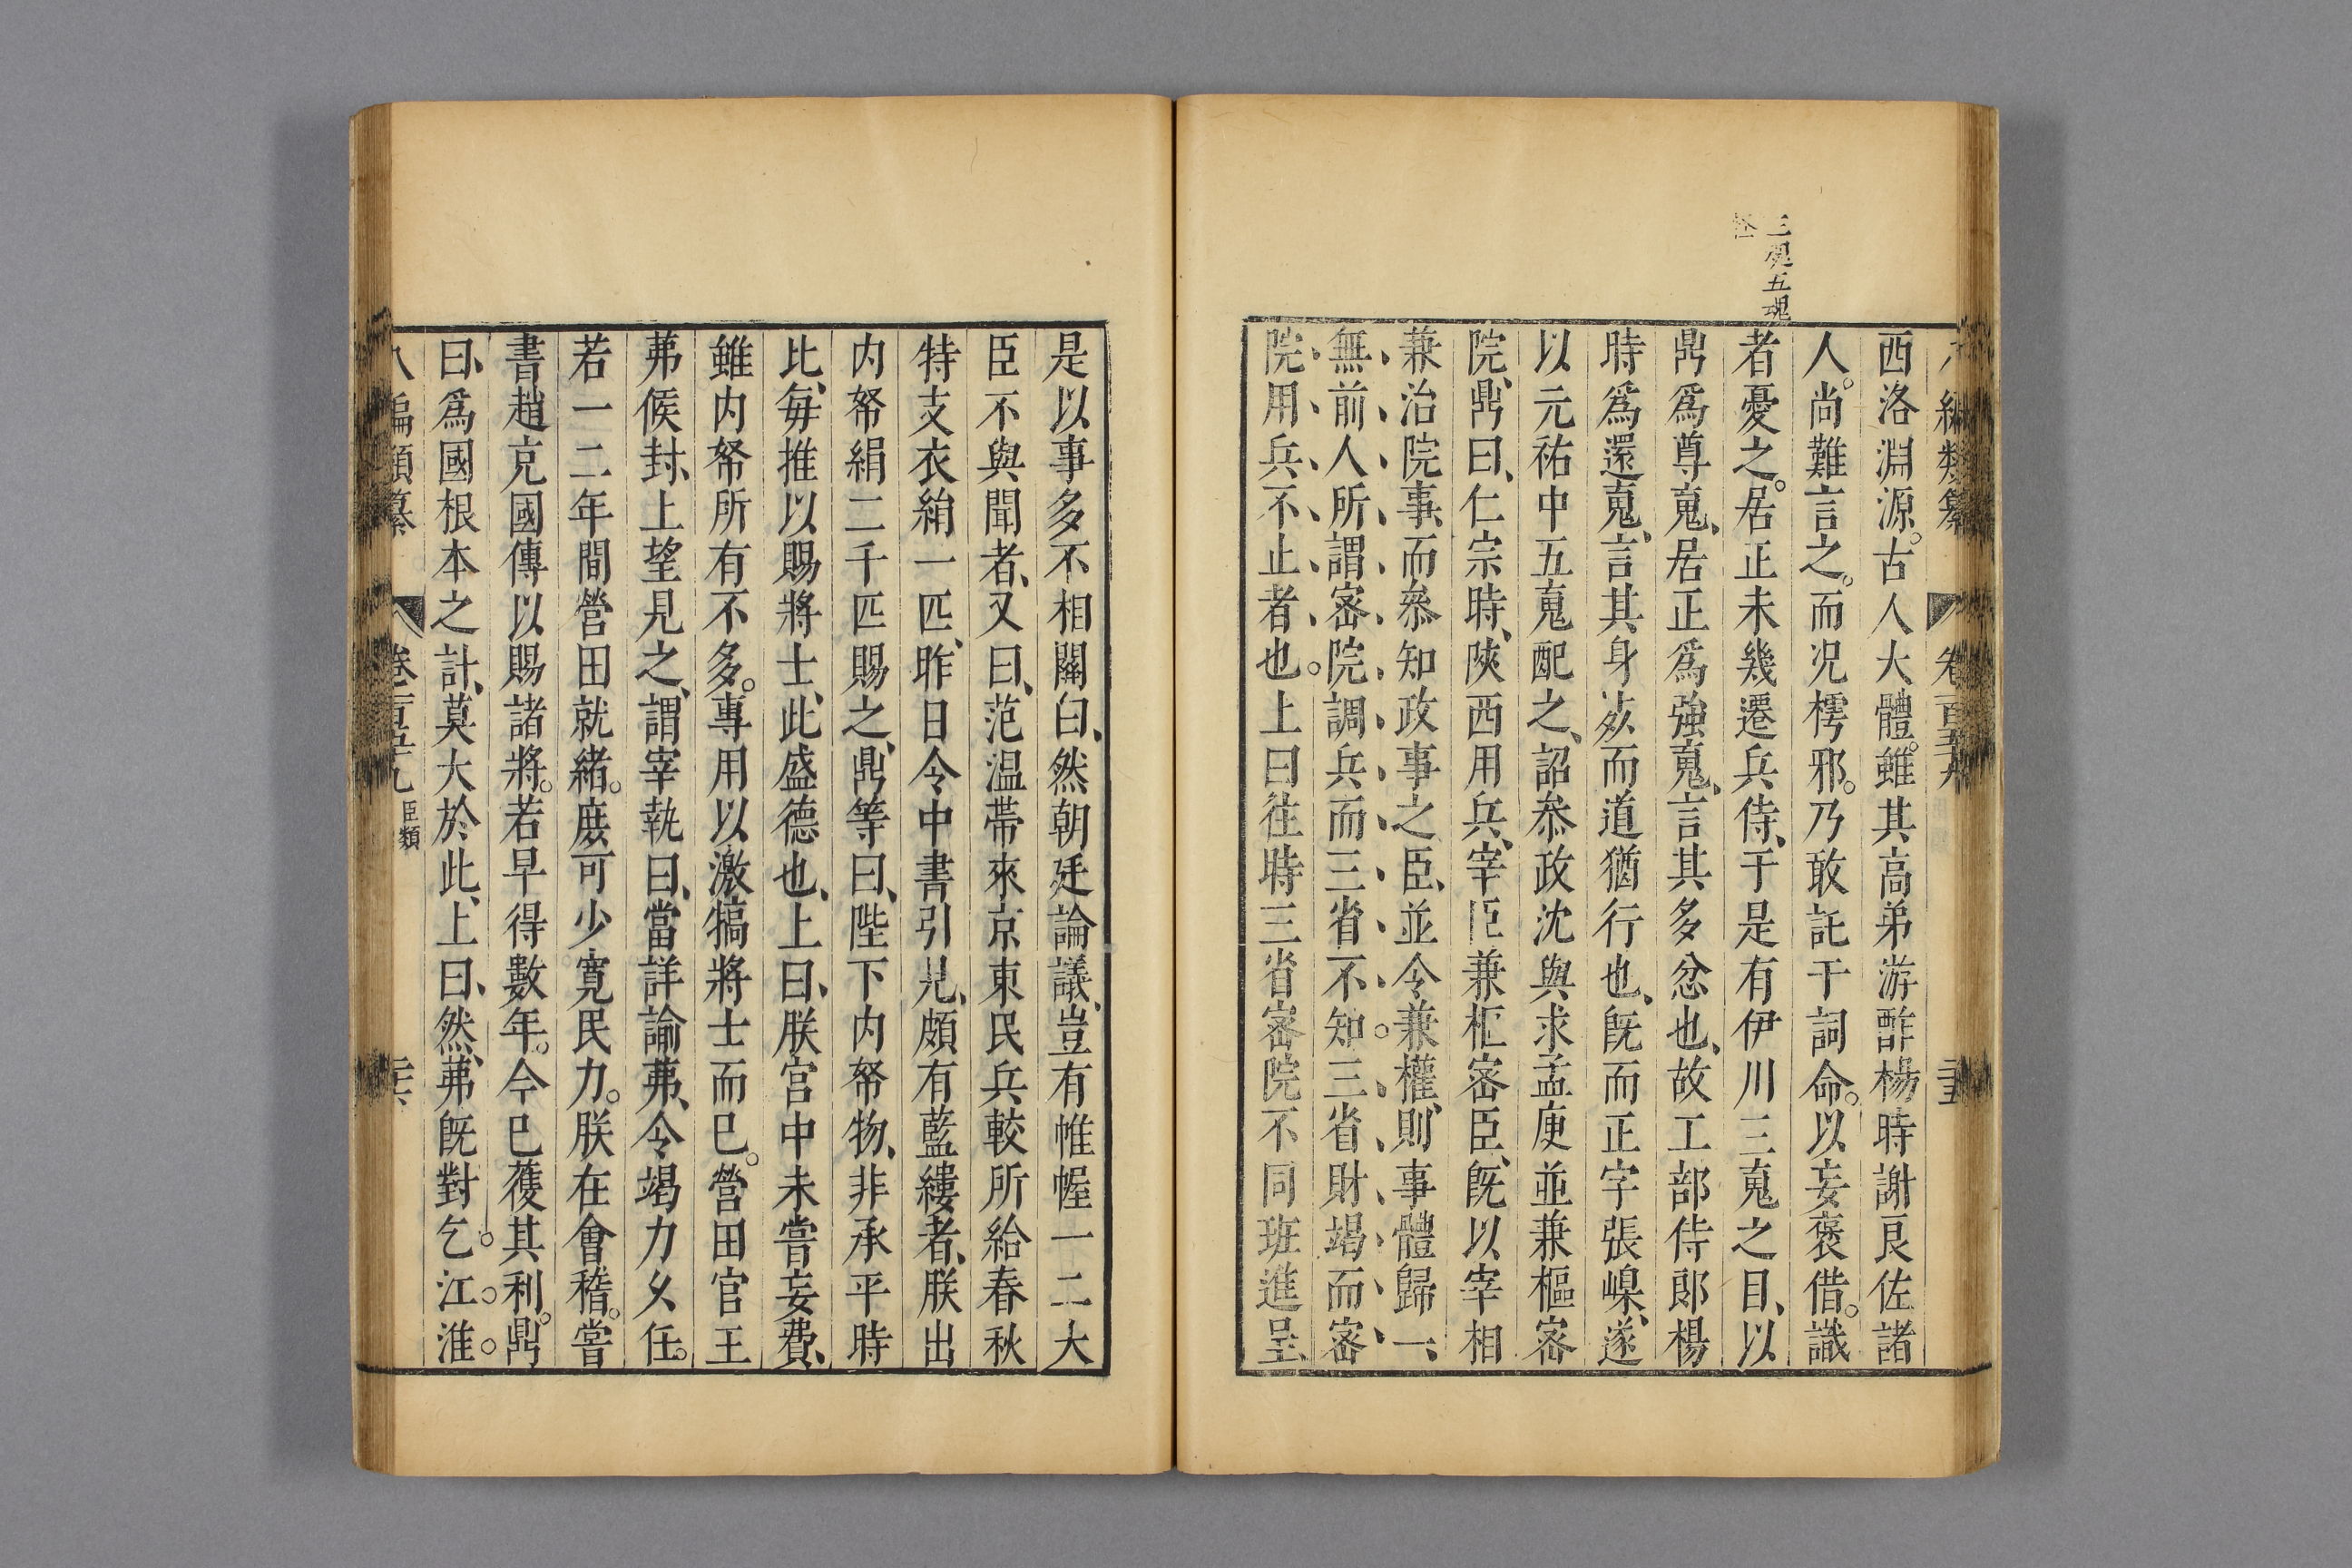 三魂五魂
八編類纂 卷百五十九 二十五
西洛淵源。古人大體。雖其高弟游酢楊時謝良佐諸
人。尚難言之。而况樗邪。乃敢託于詞命。以妄褒借。識
者憂之。居正未幾遷兵侍、于是有伊川三䰟之目、以
鼎爲尊䰟、居正爲強䰟、言其多忿也、故工部侍郎楊
時爲還䰟、言其身死而道猶行也、旣而正字張嵲、遂
以元祐中五䰟配之、詔叅政沈與求孟庾並兼樞密
院、鼎曰、仁宗時、陝西用兵、宰臣兼柜密臣、旣以宰相
兼治院事、而叅知政事之臣、並令兼權、則事體歸一、
無前人所謂密院調兵而三省不知。三省財竭而密
院用兵不止者也。上曰往時三省密院不同班進呈、
是以事多不相關白、然朝廷論議、豈有帷幄一二大
臣不與聞者、又曰、范温帶來京東民兵較所給春秋
特支衣絹一匹、昨日令中書引見、頗有藍縷者、朕出
内帑絹二千匹賜之、鼎等曰、陛下内帑物、非承平時
比、毎推以賜將士、此盛德也、上曰、朕宫中未嘗妄費、
雖内帑所有不多。專用以激犒將士而已。營田官王
茀候封、上望見之、謂宰執曰、當詳諭茀、令竭力乆任。
若一二年間營田就緒。庻可少寛民力。朕在會稽。嘗
書趙克國傳以賜諸將。若早得數年。今已獲其利。鼎
曰、爲國根本之計、莫大於此、上曰、然、茀旣對乞。江。淮。
八編類纂 卷一百五十九 臣類 二十六